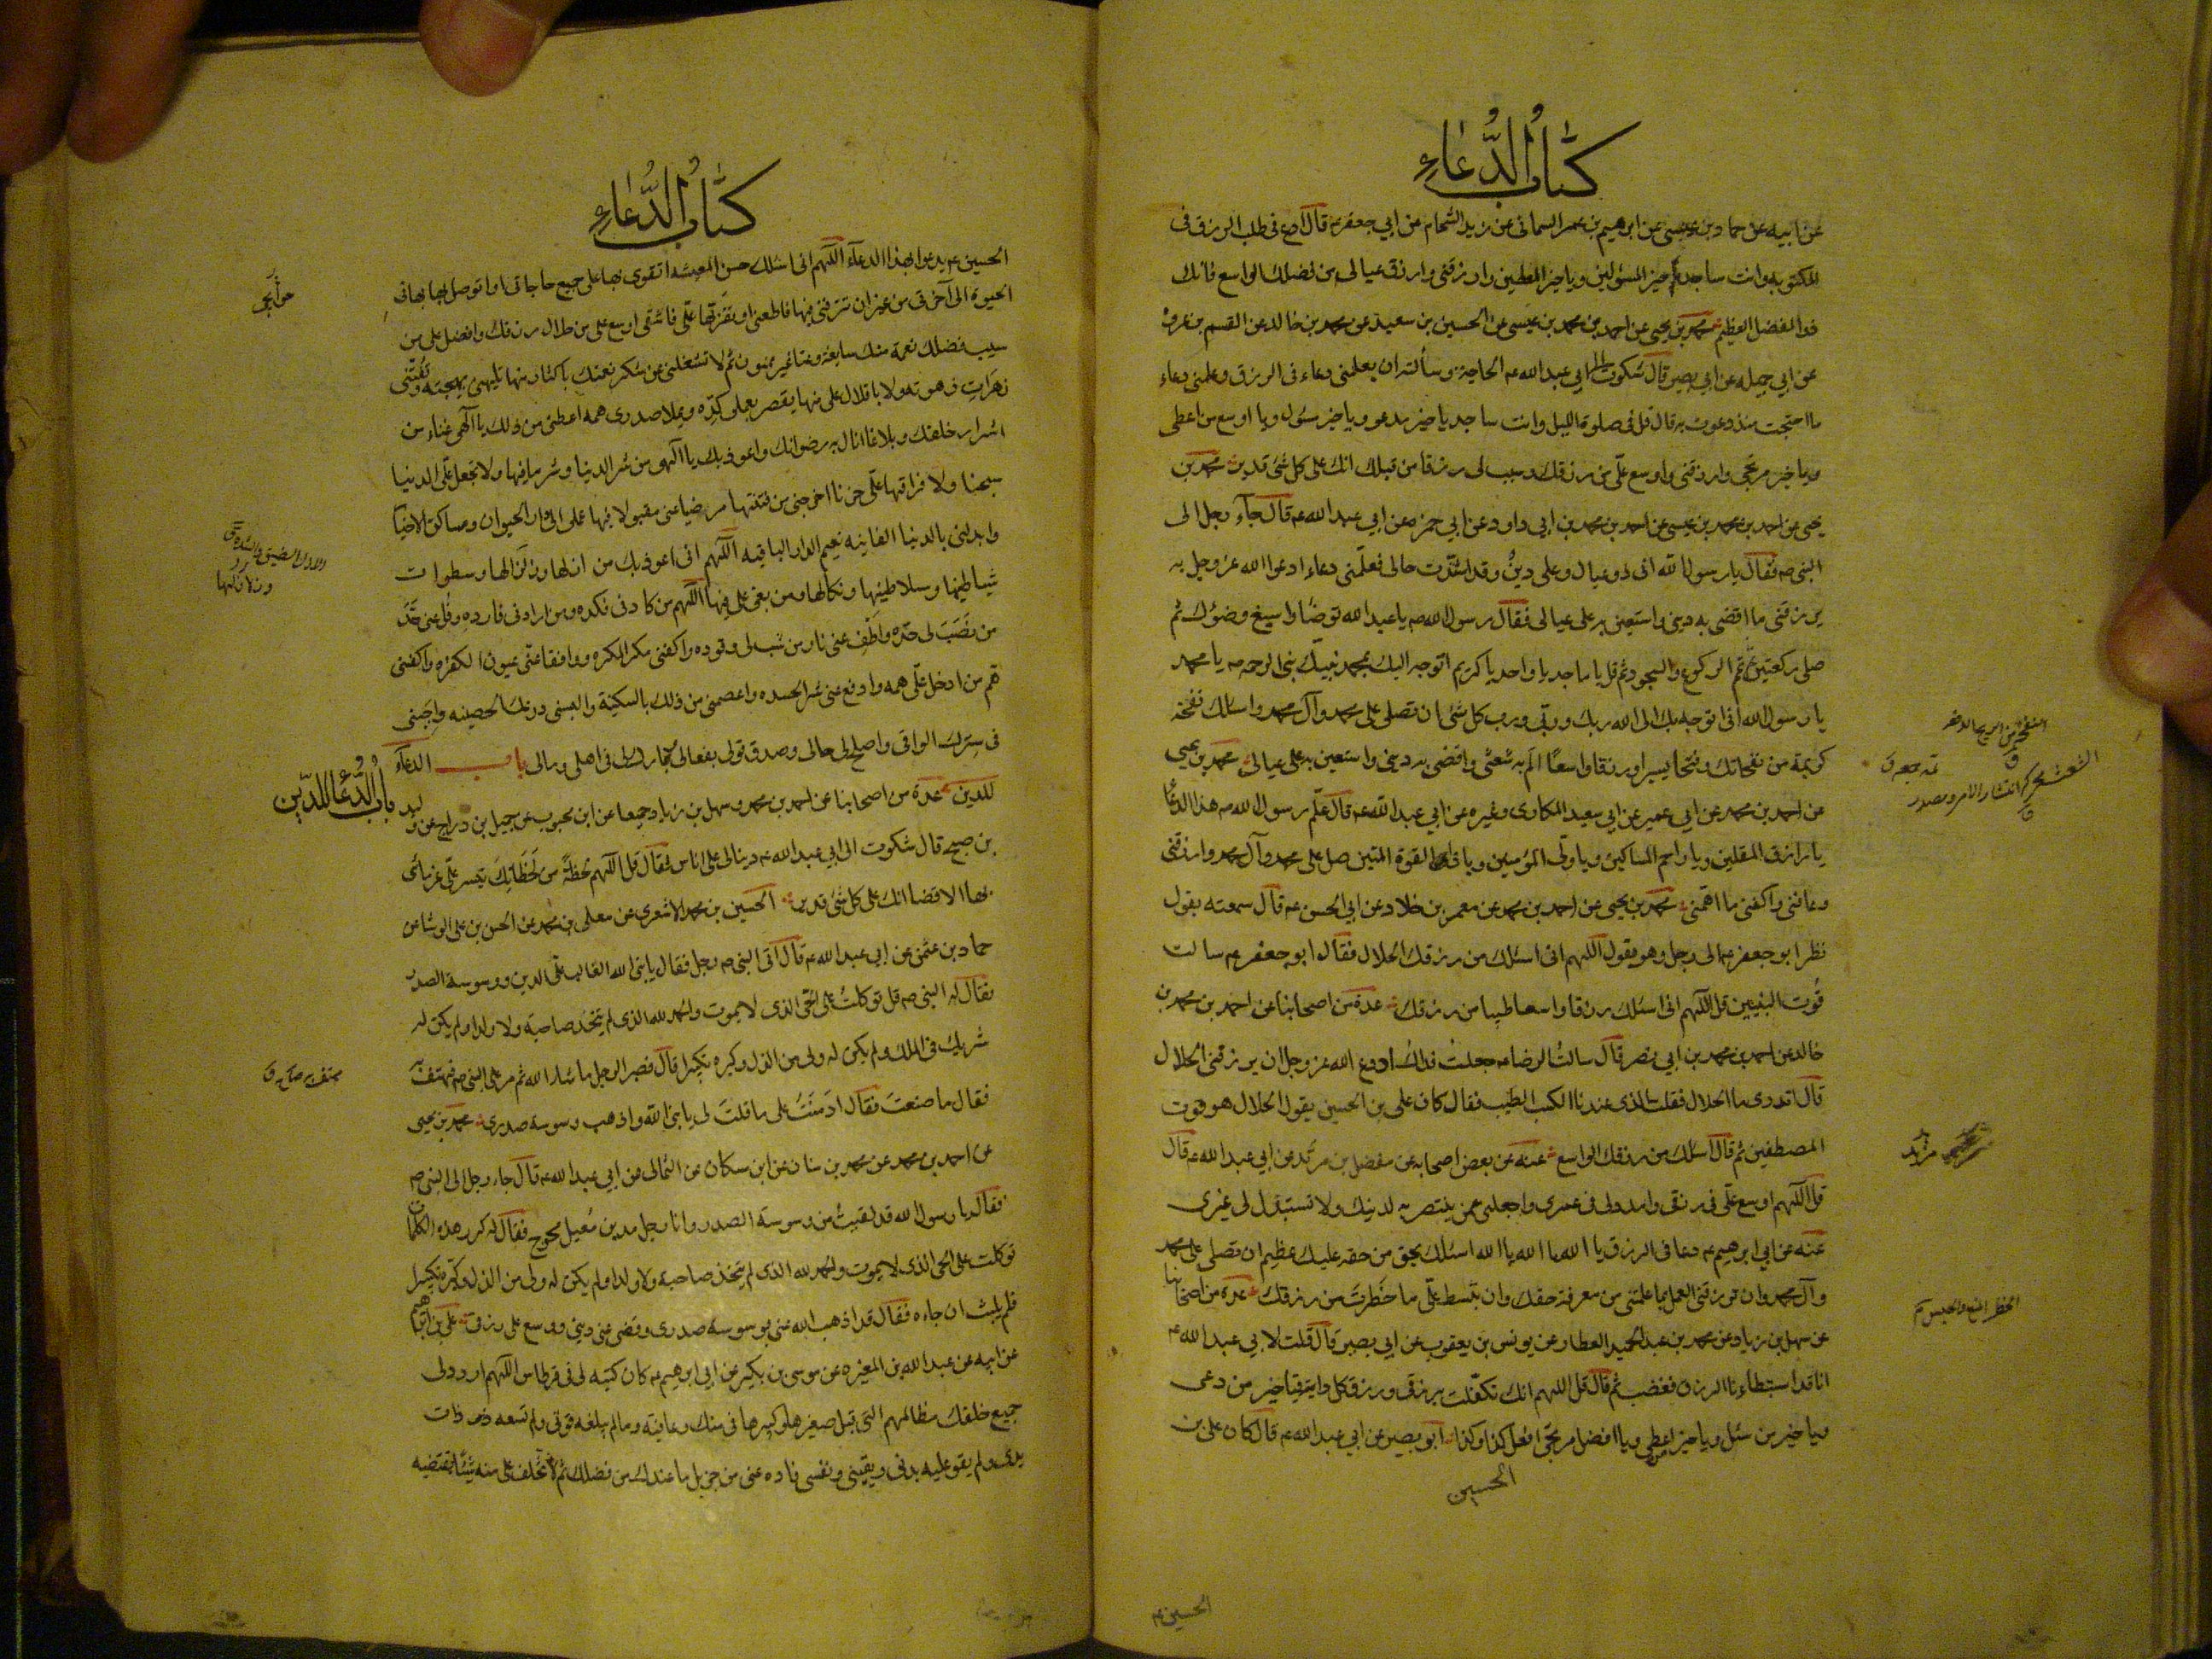 كتاب الدعاء
عن ابيه عن حماد بن عيسى عن ابرهيم بن عمر اليمانى عن زيد الشحام عن ابي جعفر ع قال ادع فى طلب الرزق فى
المكتوبة وانت ساجد يا خير المسئولين ويا خير المعطين وارزقنى وارزق عيالى من فضلك الواسع فانك
ذو الفضل العظيم محمد بن يحيى عن احمد بن محمد بن عيسى عن الحسين بن سعيد عن محمد بن خالد عن القسم بن عروة
عن ابي جميله عن ابي بصير قال شكوت الى ابي عبد الله ع الحاجة وسألته ان يعلمنى دعاء فى الرزق فعلمنى دعاء
ما احتجت منذ دعوت به قال قل فى صلوة الليل وانت ساجد يا خير مدعو ويا خير مسئول ويا اوسع من اعطى
ويا خير مرتجى وارزقنى واوسع على من رزقك وسبب لى رزقا من قبلك انك على كل شئ قدير محمد بن
يحيى عن احمد بن محمد بن عيسى عن احمد بن محمد بن ابي داود عن ابي حمزه عن ابي عبد الله ع قال جآء رجل الى
النبى ص فقال يا رسول الله انى ذو عيال وعلى دين وقد اشتدت حالى فعلمنى دعاء ادعوا الله عز وجل به
يرزقنى ما اقضى به دينى واستعين به على عيالى فقال رسول الله ص يا عبد الله توضا واسبغ وضوئك ثم
صل ركعتين تتم الركوع والسجود ثم قل يا ماجد يا واحد يا كريم اتوجه اليك بمحمد نبيك نبى الرحمه يا محمد
يا رسول الله انى اتوجه بك الى الله ربك وربى ورب كل شئ ان تصلى على محمد وآل محمد واسئلك نفحة
كريمة من نفحاتك وفتحا يسيرا ورزقا واسعا الم به شعثى واقضى به دينى واستعين به على عيالى محمد بن يحيى
عن احمد بن محمد عن ابي عمير عن ابي سعيد المكارى وغيره عن ابي عبد الله ع قال علم رسول الله ص هذا الدعا
يا رازق المقلين ويا راحم المساكين ويا ولى المؤمنين ويا ذا القوة المتين صل على محمد وآل محمد وارزقنى
وعافنى واكفنى ما اهمنى محمد بن يحيى عن احمد بن محمد عن معمر بن خلاد عن ابي الحسن ع قال سمعته يقول
نظر ابو جعفر ع الى رجل وهو يقول اللهم انى اسئلك من رزقك الحلال فقال ابو جعفر ع سالت
قوت النبيين قل اللهم انى اسئلك رزقا واسعا طيبا من رزقك عدة من اصحابنا عن احمد بن محمد بن
خالد عن احمد بن محمد بن ابي نصر قال سالت الرضا ع جعلت فداك ادع الله عز وجل ان يرزقنى الحلال
قال اتدرى ما الحلال فقلت الذى عندنا الكسب الطيب فقال كان على بن الحسين يقول الحلال هو قوت
المصطفين ثم قال اسئلك من رزقك الواسع عنه عن بعض اصحابه عن مفضل بن مزيد عن ابي عبد الله ع قال
قل اللهم اوسع على فى رزقى وامدد لى فى عمرى واجعلنى ممن ينتصر به لدينك ولا تستبدل لى غيرى
عنه عن ابي ابرهيم ع دعا فى الرزق يا الله يا الله يا الله اسئلك بحق من حقه عليك عظيم ان تصلى على محمد
وآل محمد وان ترزقنى العمل بما علمتنى من معرفة حقك وان تبسط على ما حظرت من رزقك عدة من اصحابنا
عن سهل بن زياد عن محمد بن عبد الحميد العطار عن يونس بن يعقوب عن ابي بصير قال قلت لابي عبد الله ع
انا قد استبطاءنا الرزق فغضب ثم قال قل اللهم انك تكفلت برزقى ورزق كل دابة فيا خير من دعى
ويا خير من سئل ويا خير من اعطى ويا افضل مرتجى افعل كذا وكذا ابو بصير عن ابي عبد الله ع قال كان على بن
الحسين
مزيد
الحظر المنع والحبس
الحسين ع
كتاب الدعاء
الحسين ع يدعوا بهذا الدعآء اللهم انى اسئلك حسن المعيشة اتقوى بها على جميع حاجاتى واتوصل بها فى
الحيوة الى آخرتى من غير ان تترفنى فيها فاطغى او تقترها على فاشقى اوسع على من حلال رزقك وافضل على من
سيب فضلك نعمة منك سابغة وعتا غير ممنون ثم لا تشغلنى عن شكر نعمتك باكثار منها تلهينى بهجته وتفتنى
زهرات زهوته ولا باقلال على منها يقصر بعملى كده ويملا صدرى همه اعطنى من ذلك يا الهى غناء من
اشرار خلقك وبلاغا انال به رضوانك واعوذ بك يا الهى من شر الدنيا وشر ما فيها ولا تجعل على الدنيا
سجنا ولا فراقها على حزنا اخرجنى من فتنتها مرضيا عنى مقبولا فيها عملى الى دار الحيوان ومساكن الاخيار
وابدلنى بالدنيا الفانيه نعيم الدار الباقيه اللهم انى اعوذ بك من ازلها وزلزالها وسطوات
شياطينها وسلاطينها ونكالها ومن بغى على فيها اللهم من كادنى فكده ومن ارادنى فارده وفل عنى حد
من نصب لى حده واطف عنى نار من شب لى وقوده واكفنى مكر المكره وافقا عنى عيون الكفره واكفنى
هم من ادخل على همه وادفع عنى شر الحسده واعصمنى من ذلك بالسكينة والبسنى درعك الحصينه واجننى
فى سترك الواقى واصلح لى حالى وصدق قولى بفعالى وبارك لى فى اهلى ومالى باب الدعآء
للدين عدة من اصحابنا عن احمد بن محمد وسهل بن زياد جميعا عن ابن محبوب عن جميل بن دراج عن وليد
باب الدعا للدين
بن صبيح قال شكوت الى ابي عبد الله ع دينا لى على اناس فقال قل اللهم لحظة من لحظاتك تيسر على غرمائى
بها القضا انك على كل شئ قدير الحسين بن محمد الاشعرى عن معلى بن محمد عن الحسن بن على الوشا عن
حماد بن عثمن عن ابي عبد الله ع قال اتى النبى ص رجل فقال يا نبى الله الغالب على الدين ووسوسة الصدر
فقال له النبى ص قل توكلت على الحى الذى لا يموت والحمد لله الذى لم يتخذ صاحبة ولا ولدا ولم يكن له
شريك فى الملك ولم يكن له ولى من الذل وكبره تكبيرا قال فصبر الرجل ما شاء الله ثم مر على النبى ص فهتف به
فقال ما صنعت فقال ادمنت على ما قلت لى يا نبى الله واذهب وسوسة صدرى محمد بن يحيى
عن احمد بن محمد عن محمد بن سنان عن ابن مسكان عن الثمالى عن ابي عبد الله ع قال جاء رجل الى النبى ص
فقال يا رسول الله قد لقيت من وسوسة الصدر وانا رجل مدين معيل محوج فقال له كرر هذه الكلمات
توكلت على الحى الذى لا يموت والحمد لله الذى لم يتخذ صاحبة ولا ولدا ولم يكن له ولى من الذل وكبره تكبيرا
فلم يلبث ان جاءه فقال قد اذهب الله عنى وسوسة صدرى وقضى عنى دينى ووسع على رزقى على بن ابرهيم
عن ابيه عن عبد الله بن المغيره عن موسى بن بكير عن ابي ابرهيم ع كان كتبه لى فى قرطاس اللهم اردد الى
جميع خلقك مظالمهم التى قبلى صغيرها وكبيرها فى منك وعافية وما لم تبلغه قوتى ولم تسعه ذات
يدى ولم يقو عليه بدنى ويقينى ونفسى فاده عنى من جزيل ما عندك من فضلك ثم لا تخلف على منه شيئا تقضيه